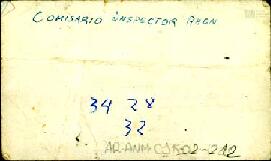 COMISARIO INSPECTOR AHGN
34 28
32
AR-ANM-CJ502-212